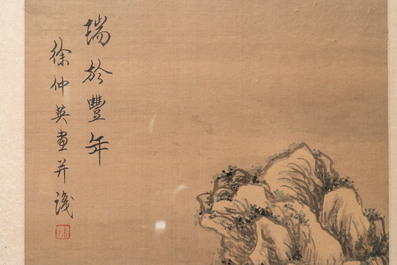 瑞於豐年
徐仲英畫并識